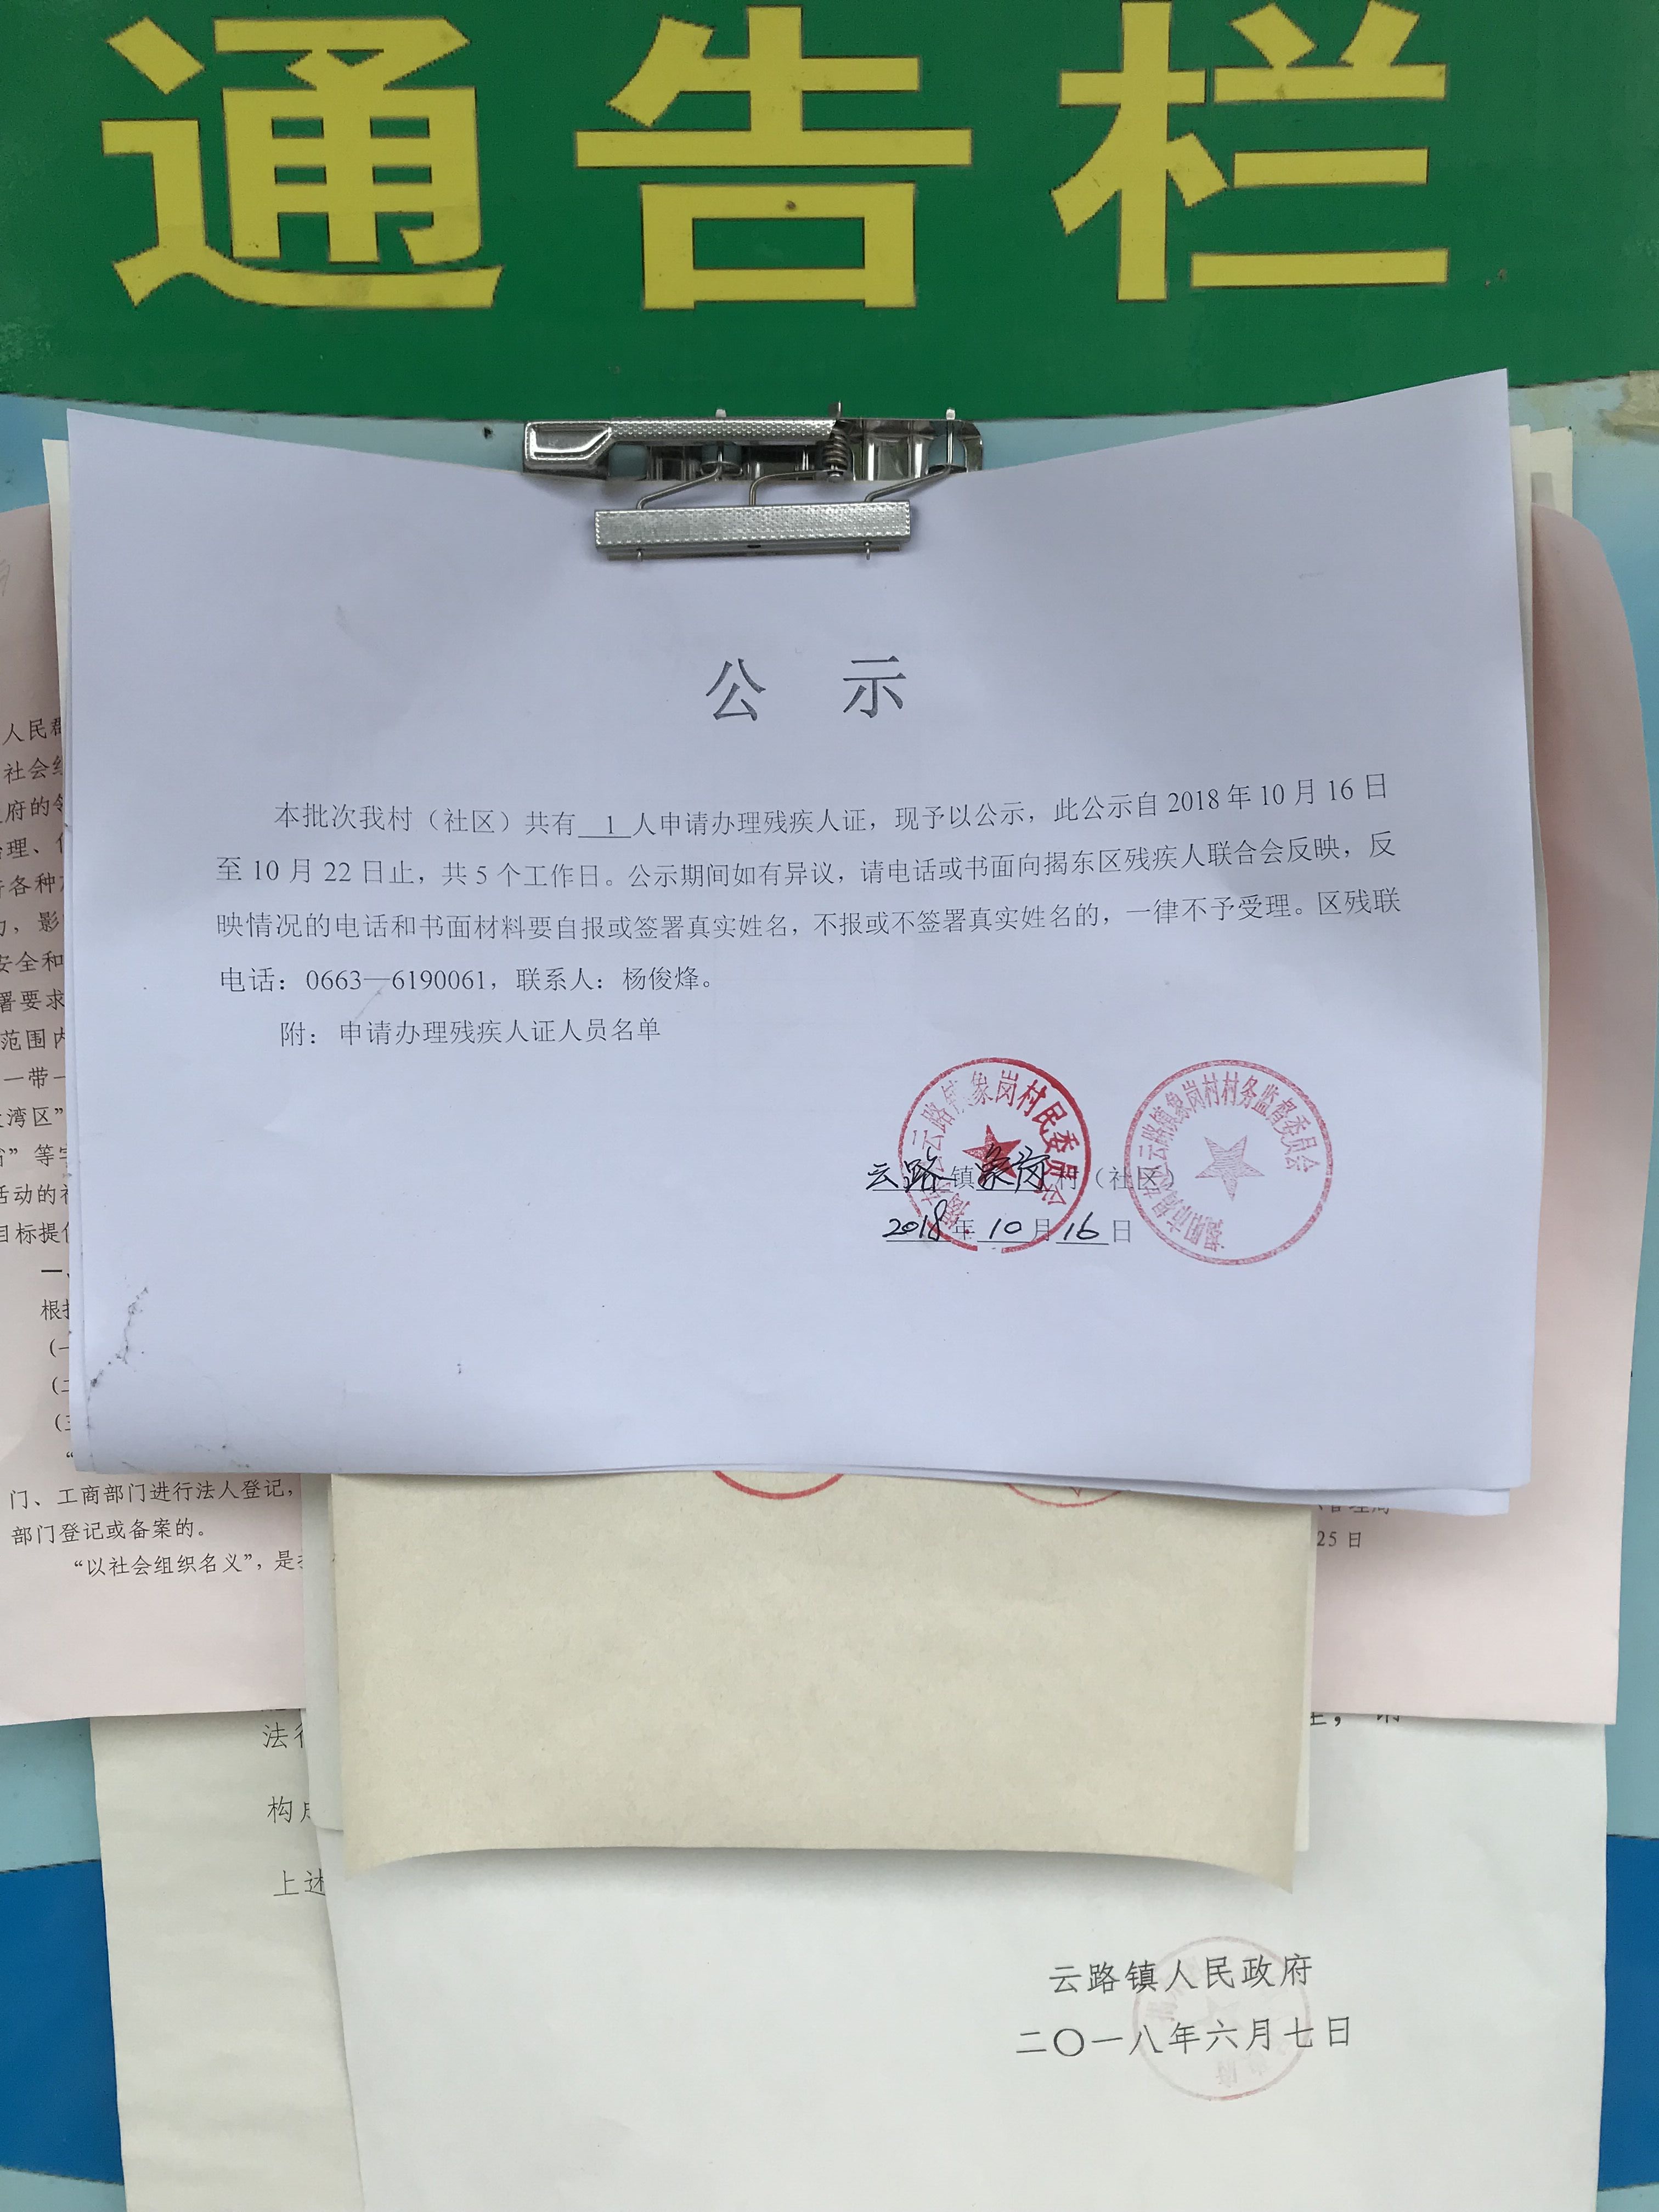 通告栏
公 示
本批次我村（社区）共有 1 人申请办理残疾人证，现予以公示，此公示自 2018 年 10 月 16 日
至 10 月 22 日止，共 5 个工作日。公示期间如有异议，请电话或书面向揭东区残疾人联合会反映，反
映情况的电话和书面材料要自报或签署真实姓名，不报或不签署真实姓名的，一律不予受理。区残联
电话：0663—6190061，联系人：杨俊烽。
附：申请办理残疾人证人员名单
云路镇象岗村民委员会
揭阳市揭东区云路镇象岗村村务监督委员会
云路 镇 象岗 村（社区）
2018 年 10 月 16 日
人民群
社会组
府的领
治理、
各种
，影
安全和
署要求
范围内
一带一
湾区”
” 等
活动的社
目标提供
一、
根据
（一
（二
（三
“
门、工商部门进行法人登记，
部门登记或备案的。
“以社会组织名义”，是
管理局
25 日
法行
构成
上述
云路镇人民政府
二〇一八年六月七日